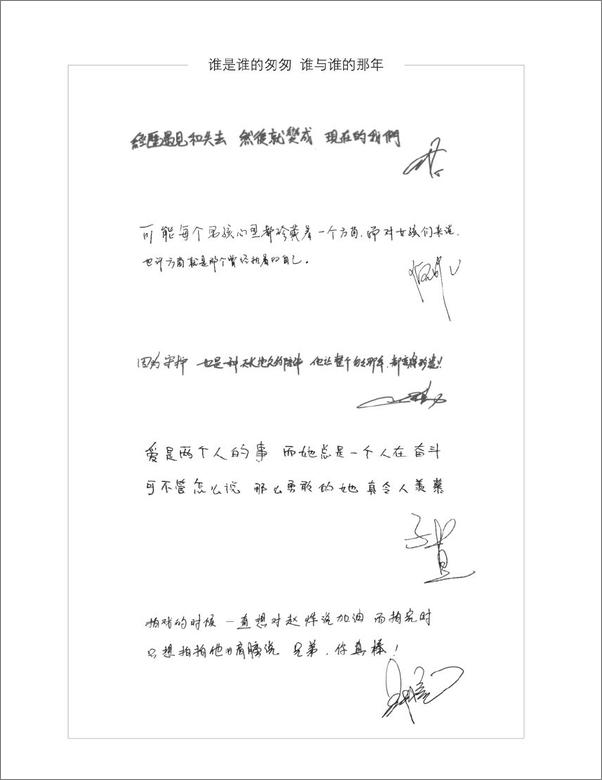 谁是谁的匆匆 谁与谁的那年
經歷遇見和失去 然後就變成 現在的我們
可能每个男孩心里都珍藏着一个方茴,而对女孩们来说,
也许方茴就是那个曾经执着的自己。
因为守护 也是一种天长地久的陪伴 他让整个的那年,都
爱是两个人的事 而她总是一个人在奋斗
可不管怎么说 那么勇敢的她 真令人羡慕
拍戏的时候 一直想对赵烨说加油 而拍完时
只想拍拍他的肩膀说 兄弟,你真棒!